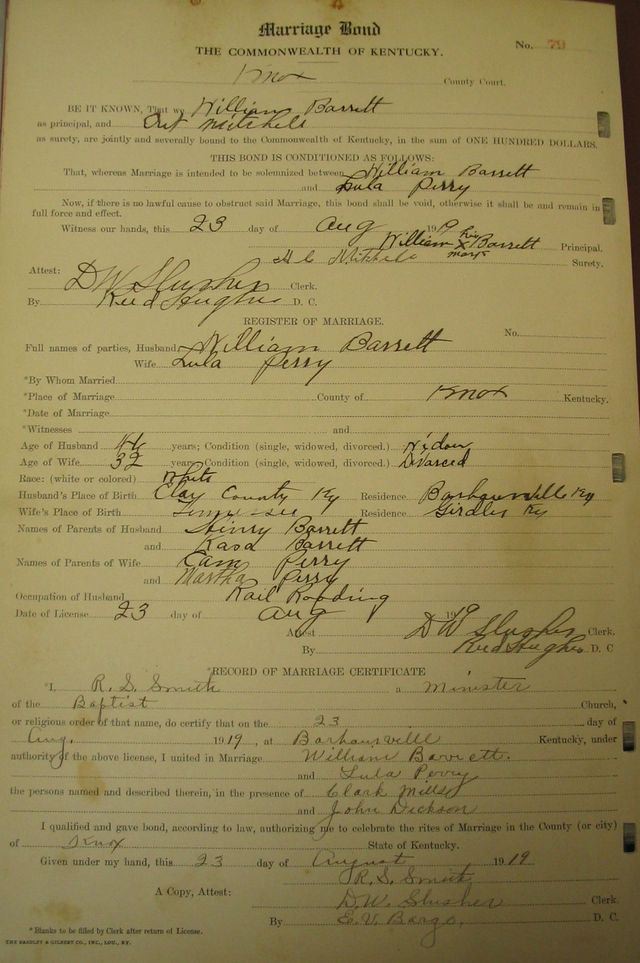 Marriage Bond
THE COMMONWEALTH OF KENTUCKY.
No. 79
Knox County Court.
BE IT KNOWN, That we William Barrett
as principal, and Mitchell
as surety, are jointly and severally bound to the Commonwealth of Kentucky, in the sum of ONE HUNDRED DOLLARS.
THIS BOND IS CONDITIONED AS FOLLOWS:
That, whereas Marriage is intended to be solemnized between William Barrett
and Lula Perry
Now, if there is no lawful cause to obstruct said Marriage, this bond shall be void, otherwise it shall be and remain in
full force and effect.
Witness our hands, this 23 day of Aug 1919
William his X mark Barrett Principal.
Mitchell Surety.
Attest:
D W Slusher Clerk.
By Reed Hughes D. C.
REGISTER OF MARRIAGE.
No.
Full names of parties, Husband William Barrett
Wife Lula Perry
*By Whom Married
*Place of Marriage County of Knox Kentucky.
*Date of Marriage
*Witnesses and
Age of Husband 46 years; Condition (single, widowed, divorced.) Widow
Age of Wife 32 years; Condition (single, widowed, divorced.) Divorced
Race: (white or colored) White
Husband's Place of Birth Clay County Ky Residence Barbourville Ky
Wife's Place of Birth Tennessee Residence Girdler Ky
Names of Parents of Husband Henry Barrett
and Barrett
Names of Parents of Wife Cam Perry
and Martha Perry
Occupation of Husband Rail Roading
Date of License 23 day of Aug 1919
Attest D W Slusher Clerk.
By Reed Hughes D. C
*RECORD OF MARRIAGE CERTIFICATE
*I, R. S. Smith a Minister
of the Baptist Church,
or religious order of that name, do certify that on the 23 day of
Aug. 1919, at Barbourville Kentucky, under
authority of the above license, I united in Marriage William Barrett.
and Lula Perry
the persons named and described therein, in the presence of Clark Mills
and John Dickson
I qualified and gave bond, according to law, authorizing me to celebrate the rites of Marriage in the County (or city)
of Knox State of Kentucky.
Given under my hand, this 23 day of August 1919
R. S. Smith
A Copy, Attest: D. W. Slusher Clerk.
By E. V. Bargo. D. C.
* Blanks to be filled by Clerk after return of License.
THE BRADLEY & GILBERT CO., INC., LOU., KY.